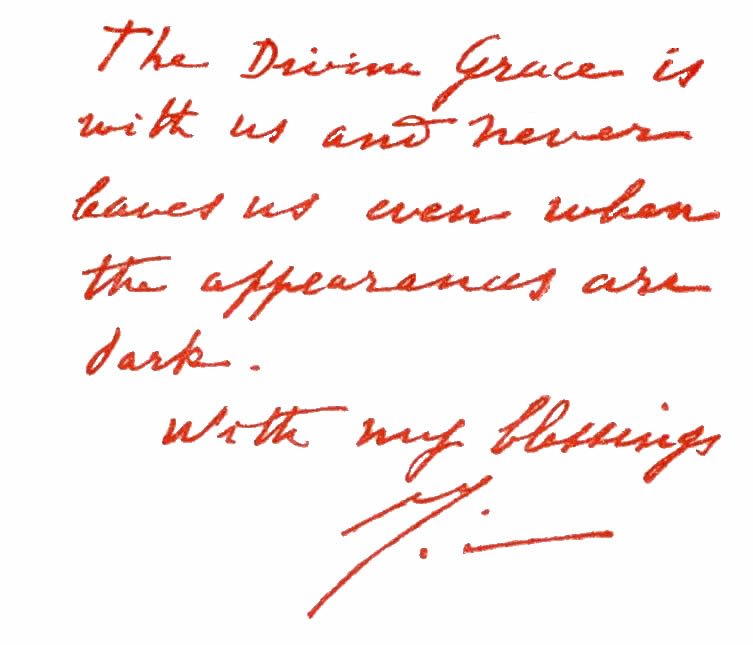 The Divine Grace is
with us and never
leaves us even when
the appearances are
dark.
With my blessings